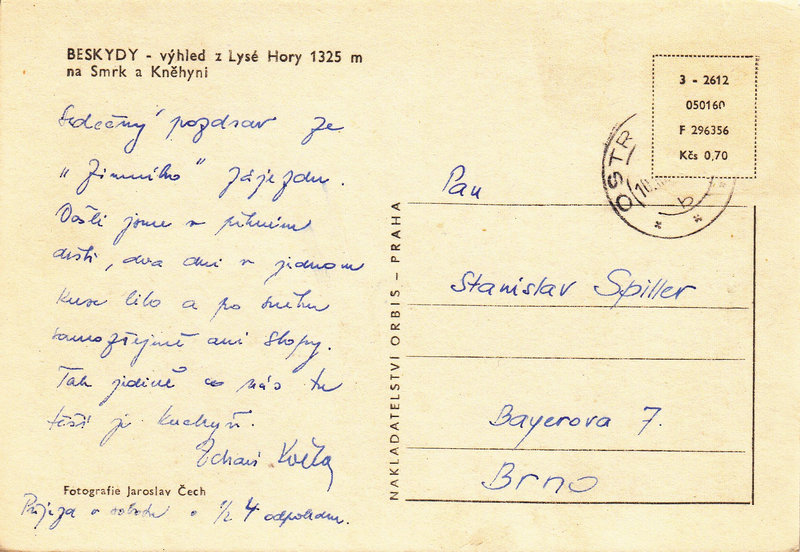 BESKYDY - výhled z Lysé Hory 1325 m
na Smrk a Kněhyni
Srdečný pozdrav ze
"zimního" zájezdu.
Došli jsme v pěkném
dešti, dva dni v jednom
kuse lilo a po sněhu
samozřejmě ani stopy.
Tak jedině co nás tu
těší je kuchyň.
Květa
Fotografie Jaroslav Čech
Příjezd v sobotu o 1/2 4 odpoledne.
NAKLADATELSTVÍ ORBIS - PRAHA
3 - 2612
050160
F 296356
Kčs 0,70
OSTR
b
Pan
Stanislav Spiller
Bayerova 7.
Brno